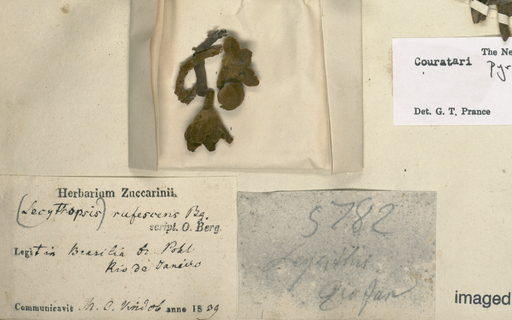 Couratari
The Ne
Pyr
Det. G. T. Prance
Herbarium Zuccarinii.
(Lecythopsis) rufescens Bg.
script. O. Berg.
Legit in Brasilia Dr. Pohl
Rio de Janeiro
Communicavit M. C. Vindob anno 1839
5782
Lecythis
Rio Jan
imaged